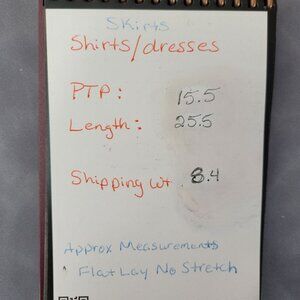 Skirts
Shirts/dresses
PTP: 15.5
Length: 25.5
Shipping wt 8.4
Approx Measurements
Flat Lay No Stretch